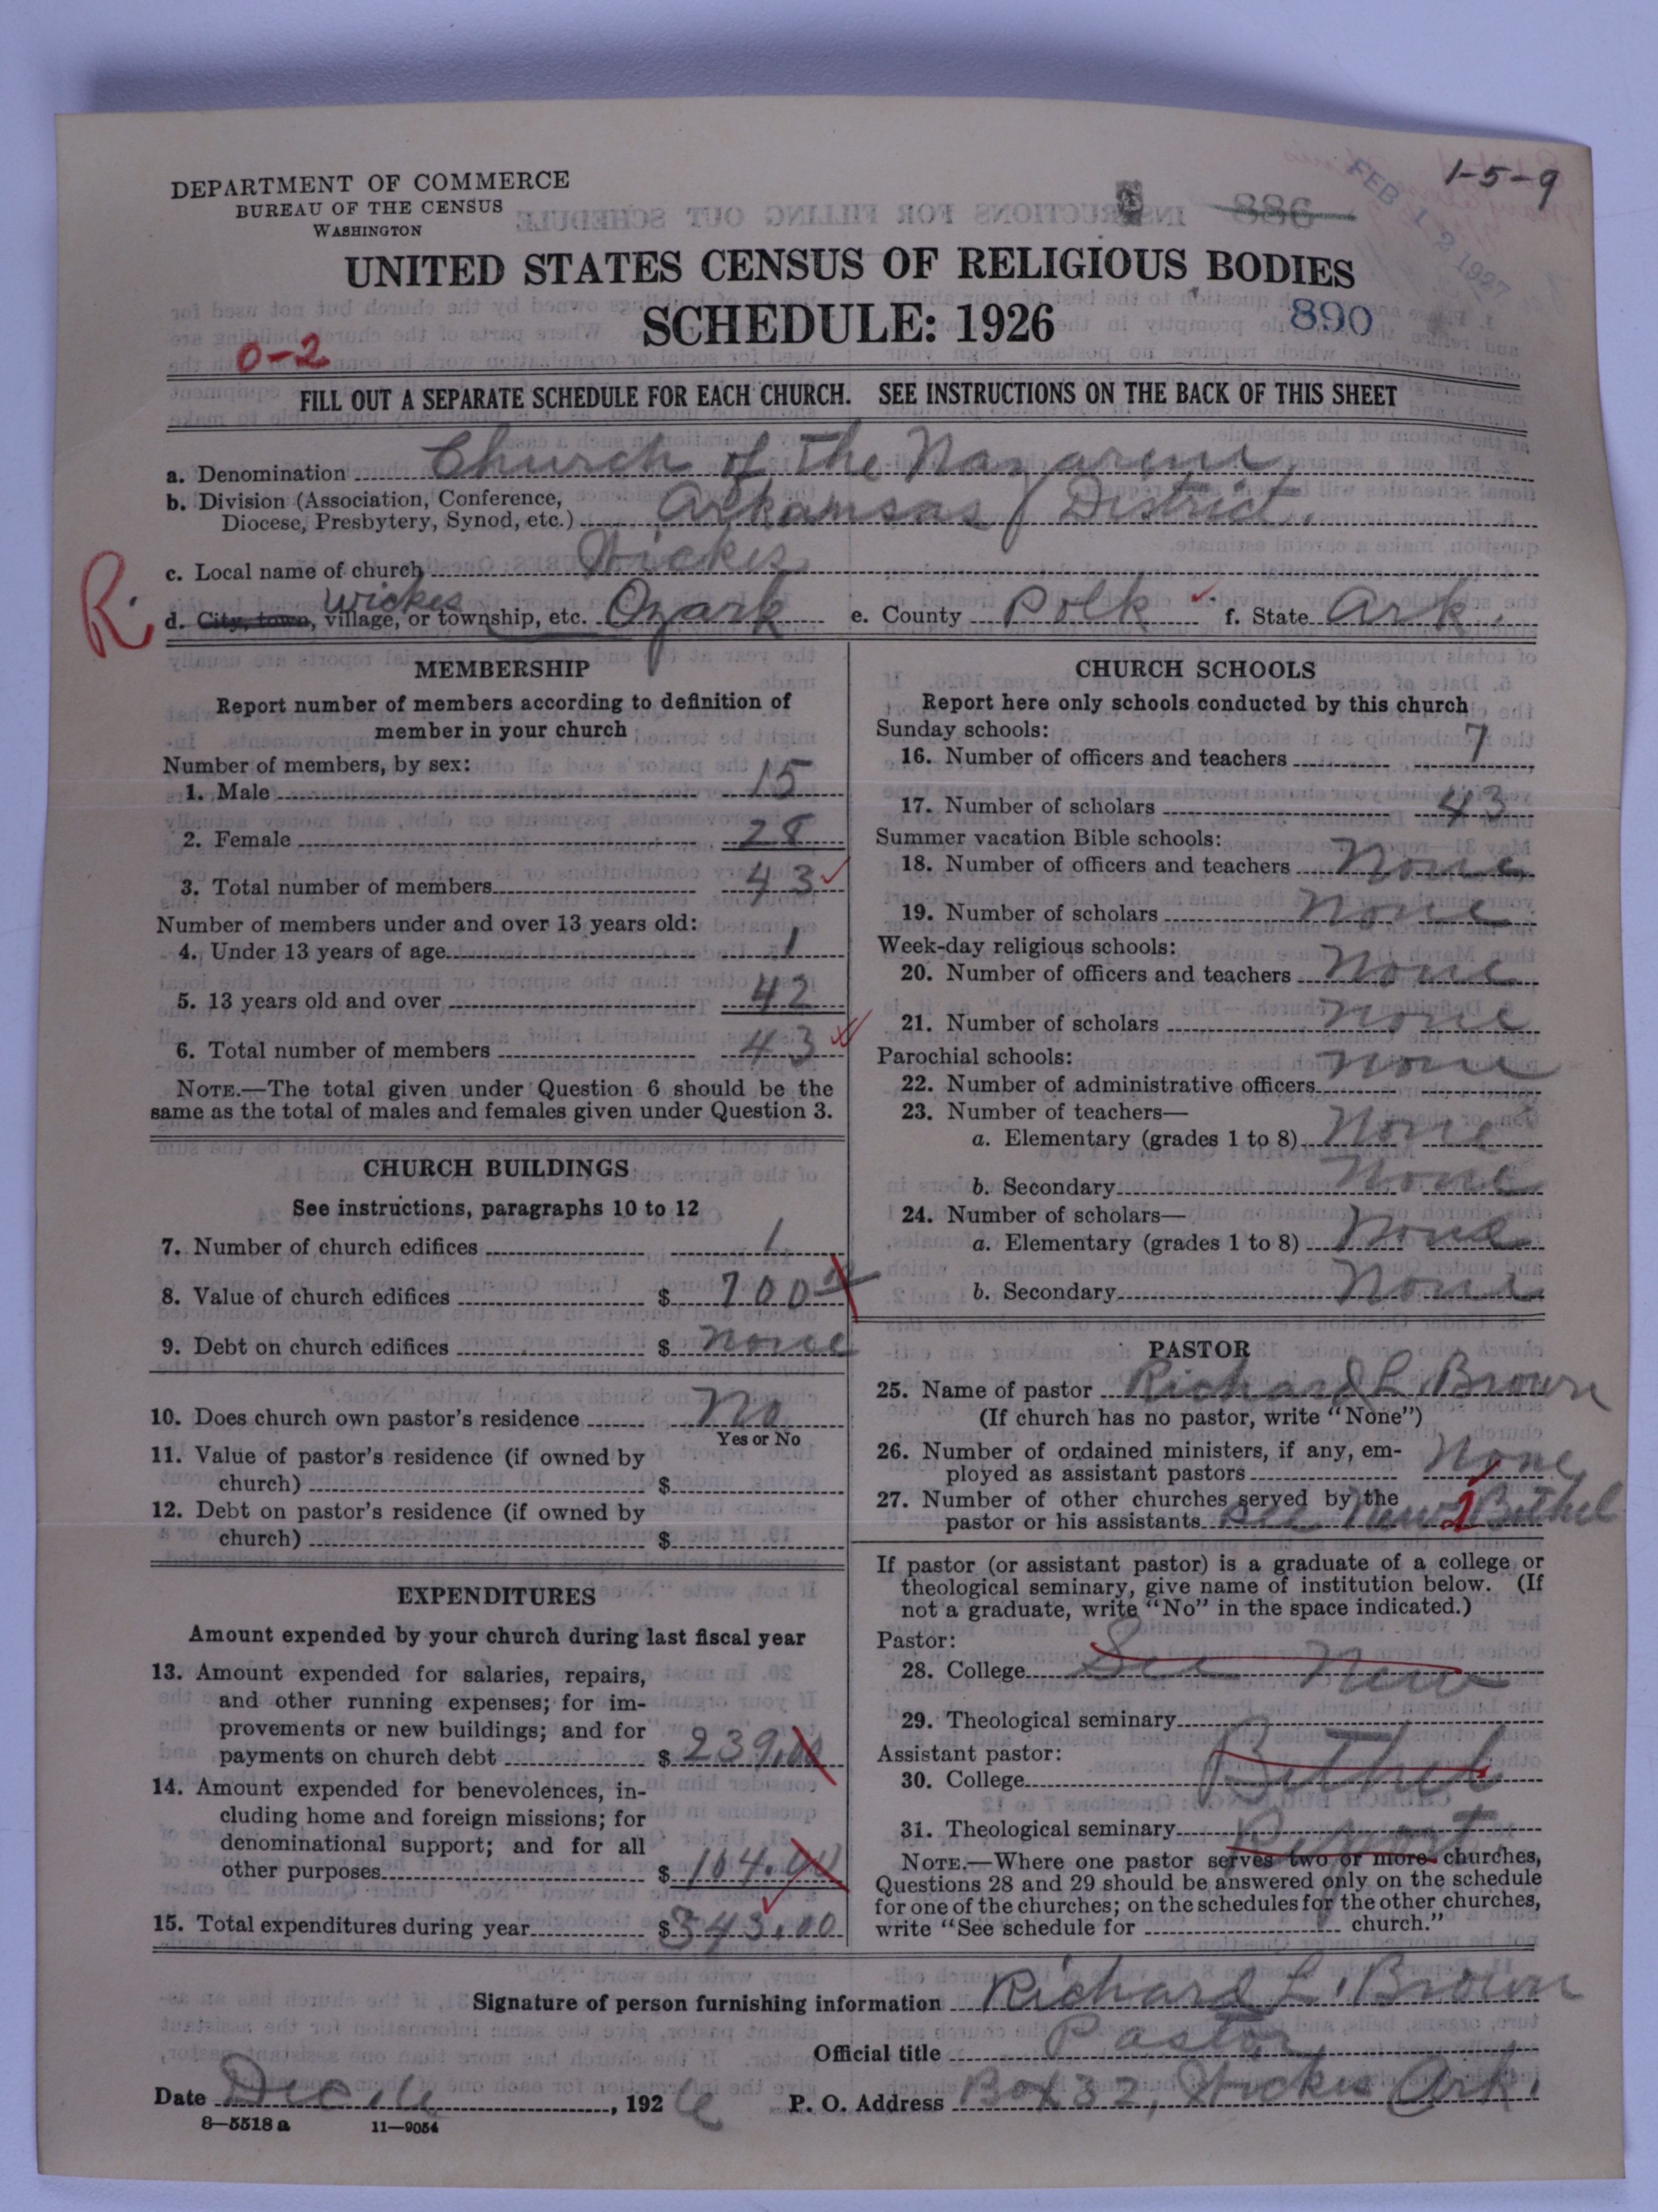 1-5-9
DEPARTMENT OF COMMERCE
BUREAU OF THE CENSUS
WASHINGTON
886
FEB 12 1927
UNITED STATES CENSUS OF RELIGIOUS BODIES
SCHEDULE: 1926
890
0-2
FILL OUT A SEPARATE SCHEDULE FOR EACH CHURCH. SEE INSTRUCTIONS ON THE BACK OF THIS SHEET
a. Denomination Church of the Nazarene
b. Division (Association, Conference,
Diocese, Presbytery, Synod, etc.) Arkansas District.
c. Local name of church Wickes
R. Wickes
d. City, town, village, or township, etc. Ozark e. County Polk f. State Ark.
MEMBERSHIP
Report number of members according to definition of
member in your church
Number of members, by sex:
1. Male 15
2. Female 28
3. Total number of members 43
Number of members under and over 13 years old:
4. Under 13 years of age 1
5. 13 years old and over 42
6. Total number of members 43
NOTE.—The total given under Question 6 should be the
same as the total of males and females given under Question 3.
CHURCH BUILDINGS
See instructions, paragraphs 10 to 12
7. Number of church edifices 1
8. Value of church edifices $ 700
9. Debt on church edifices $ none
10. Does church own pastor's residence No
Yes or No
11. Value of pastor's residence (if owned by
church) $
12. Debt on pastor's residence (if owned by
church) $
EXPENDITURES
Amount expended by your church during last fiscal year
13. Amount expended for salaries, repairs,
and other running expenses; for im-
provements or new buildings; and for
payments on church debt $ 239.00
14. Amount expended for benevolences, in-
cluding home and foreign missions; for
denominational support; and for all
other purposes $ 104.00
15. Total expenditures during year $ 343.00
CHURCH SCHOOLS
Report here only schools conducted by this church
Sunday schools:
16. Number of officers and teachers 7
17. Number of scholars 43
Summer vacation Bible schools:
18. Number of officers and teachers None
19. Number of scholars None
Week-day religious schools:
20. Number of officers and teachers None
21. Number of scholars None
Parochial schools:
22. Number of administrative officers None
23. Number of teachers—
a. Elementary (grades 1 to 8) None
b. Secondary None
24. Number of scholars—
a. Elementary (grades 1 to 8) None
b. Secondary None
PASTOR
25. Name of pastor Richard L. Brown
(If church has no pastor, write "None")
26. Number of ordained ministers, if any, em-
ployed as assistant pastors None
27. Number of other churches served by the
pastor or his assistants See New 1 Bethel
If pastor (or assistant pastor) is a graduate of a college or
theological seminary, give name of institution below. (If
not a graduate, write "No" in the space indicated.)
Pastor:
28. College See New
29. Theological seminary
Assistant pastor: Bethel
30. College
31. Theological seminary Report
NOTE.—Where one pastor serves two or more churches,
Questions 28 and 29 should be answered only on the schedule
for one of the churches; on the schedules for the other churches,
write "See schedule for church."
Signature of person furnishing information Richard L. Brown
Official title Pastor
Date Dec. 16, 1926 P. O. Address Box 32, Wickes Ark.
8—5518 a 11—9054